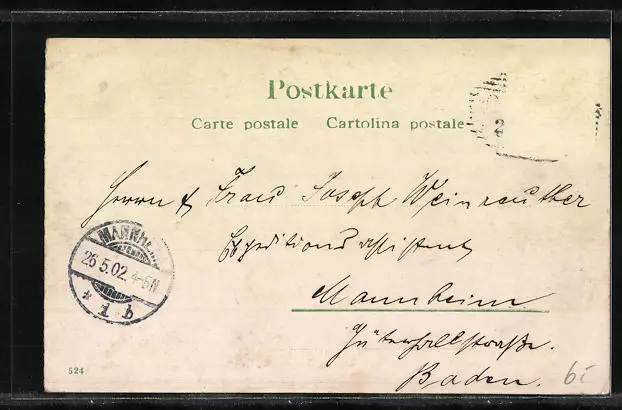 Postkarte
Carte postale Cartolina postale
Herrn & Frau Joseph Weinreuther
Expeditionsassistent
Mannheim
Güterhallstraße.
Baden.
MANNH
26.5.02. 4-5N
* 1 b
524